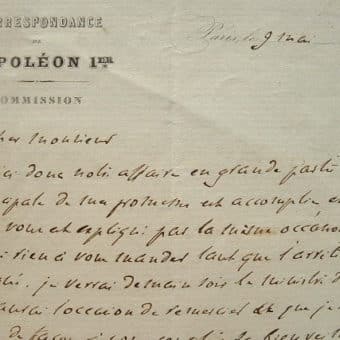 RRESPONDANCE
DE
POLÉON IER
COMMISSION
Paris, le 9 mai
her monsieur
ci donc notre affaire en grande partie
capale de ma promesse est accomplie e
vous est expliqué par la même occasio
rien à vous mander tant que l'arrêté
je verrai demain soir le ministre d
aurai l'occasion de remercier et que je
de